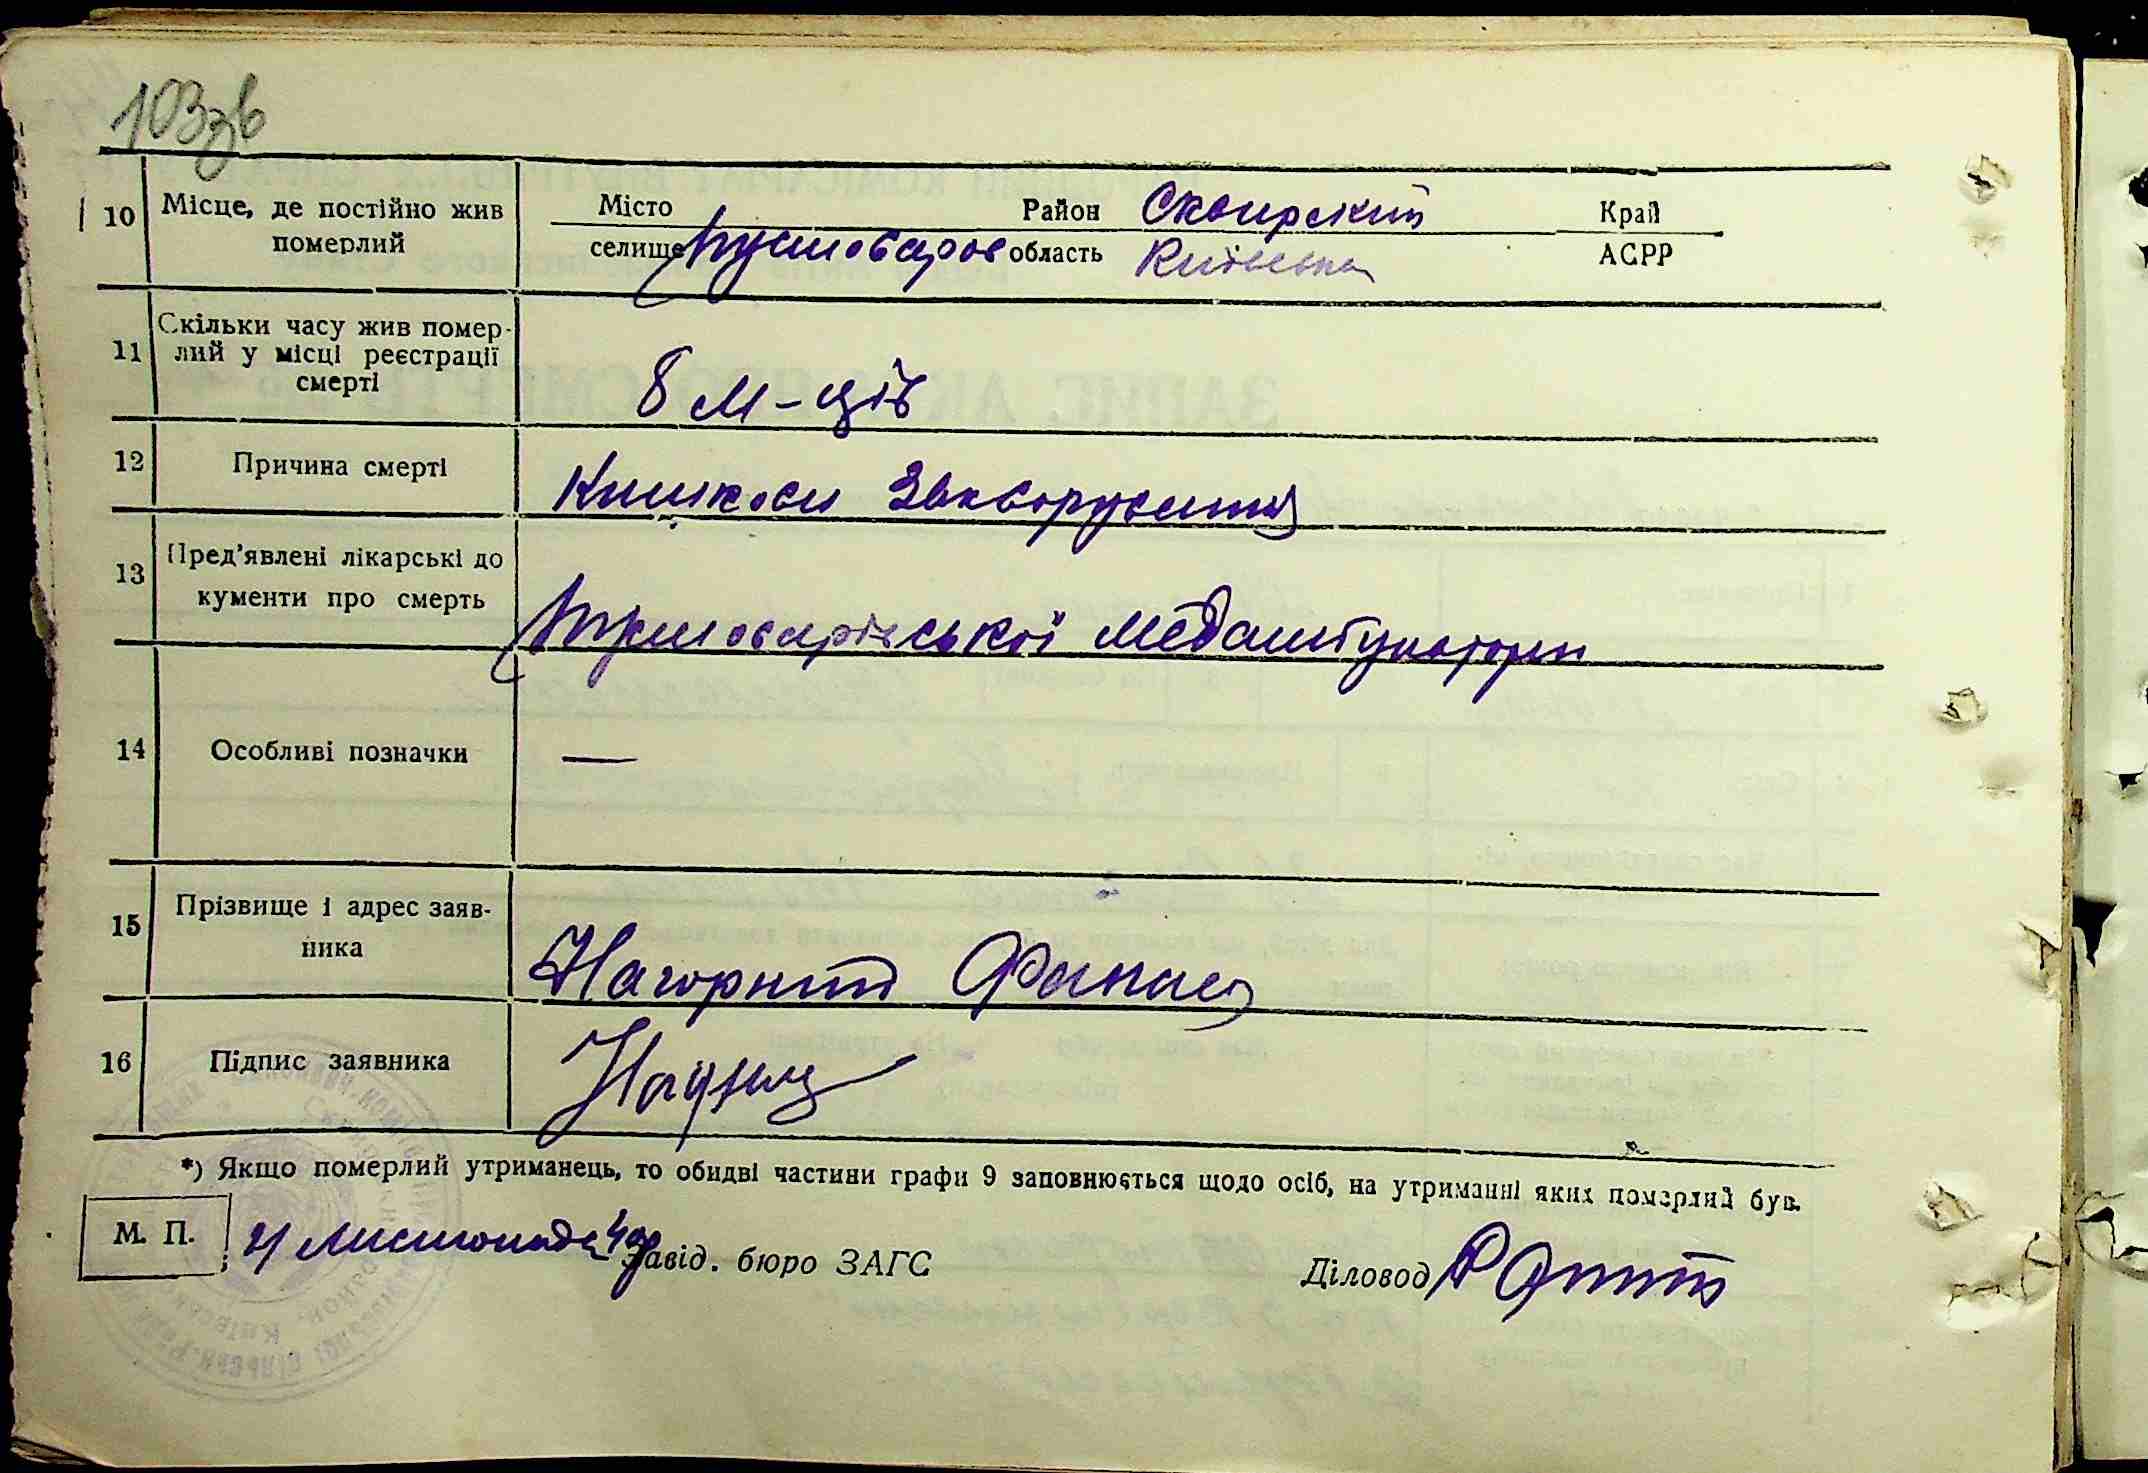 103зв
10 Місце, де постійно жив померлий
Місто Район Сквирский Край
селище Пустоваров область Київська АСРР
11 Скільки часу жив помер-
лий у місці реєстрації
смерті
8 м-ців
12 Причина смерті
Кишкові Захворування
13 Пред'явлені лікарські до
кументи про смерть
Пустоварівської медамбулаторіи
14 Особливі позначки
—
15 Прізвище і адрес заяв-
ника
Нагорний Фанас
16 Підпис заявника
*) Якщо померлий утриманець, то обидві частини графи 9 заповнюється щодо осіб, на утриманні яких померлий був.
М. П. Листопада 40р Завід. бюро ЗАГС Діловод